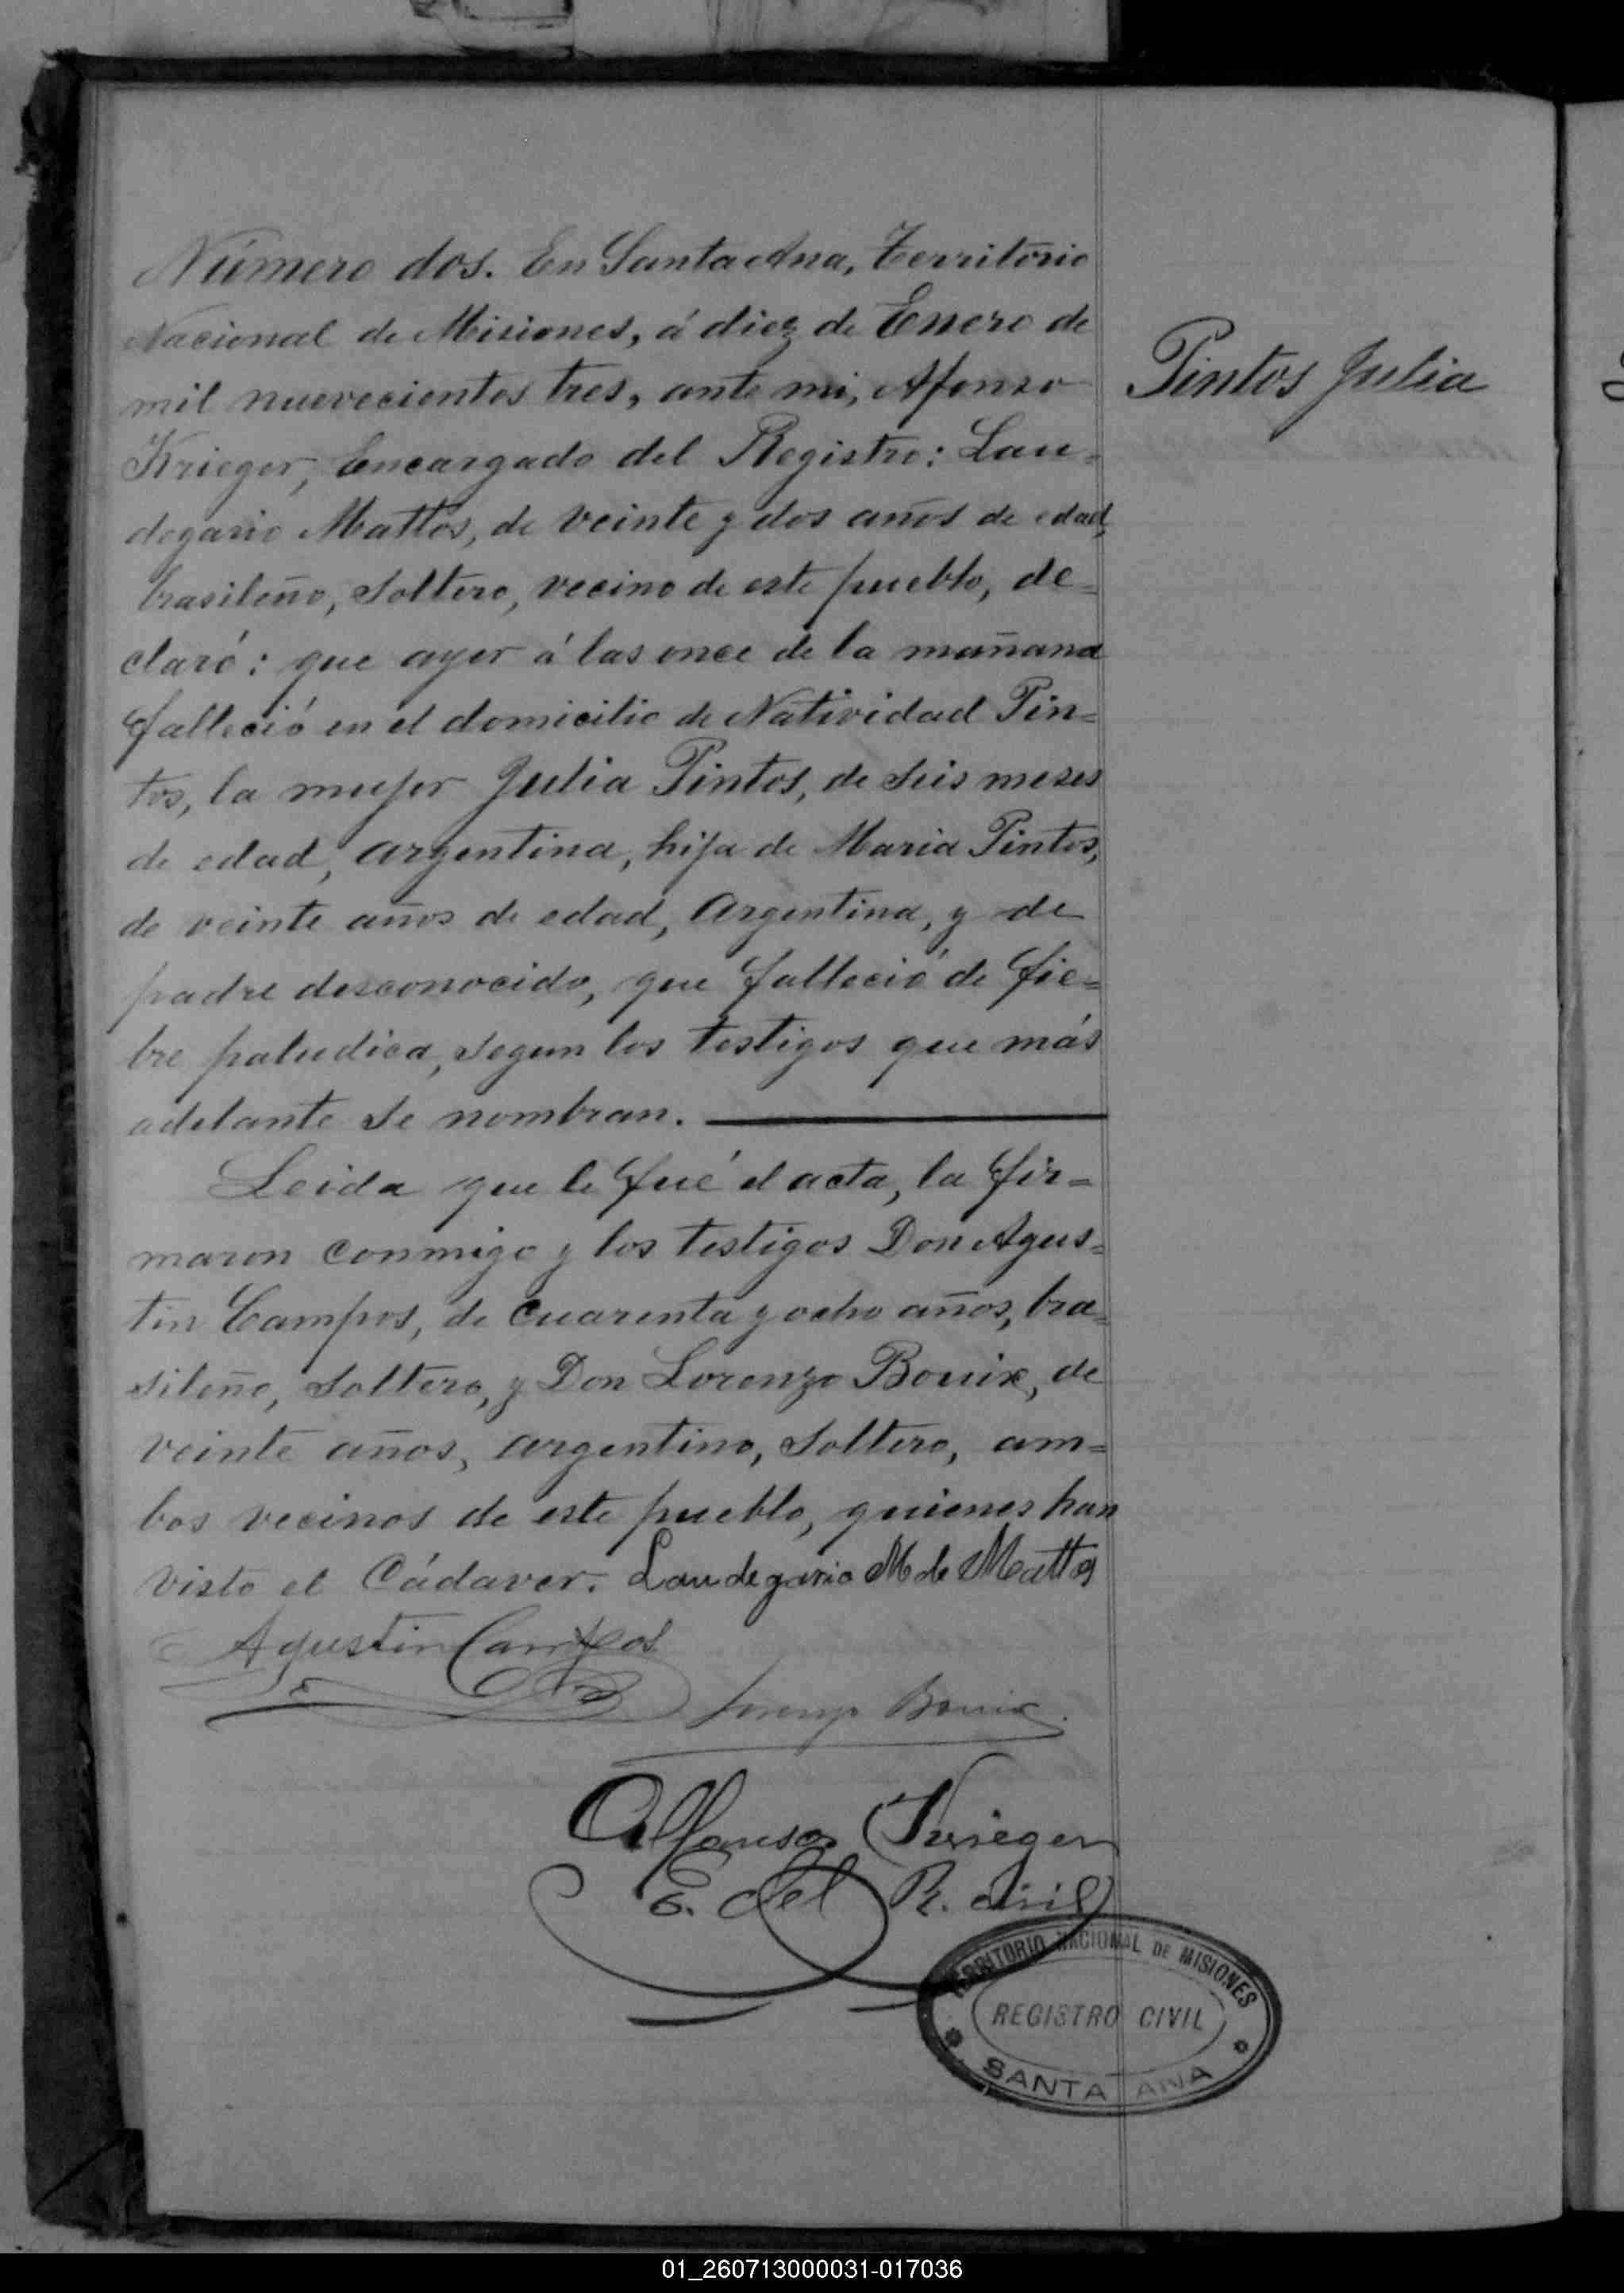 Número dos. En Santa Ana, Territorio
Nacional de Misiones, á diez de Enero de
mil nuevecientos tres, ante mi, Afonso
Krieger, Encargado del Registro: Lau=
degario Mattos, de veinte y dos años de edad,
brasileño, soltero, vecino de este pueblo, de=
claró: que ayer á las once de la mañana
falleció en el domicilio de Natividad Pin=
tos, la mujer Julia Pintos, de seis meses
de edad, argentina, hija de Maria Pintos,
de veinte años de edad, Argentina, y de
padre desconocido, que falleció de fie=
bre paludica, segun los testigos que más
adelante se nombran.
Leida que le fué el acta, la fir=
maron conmigo y los testigos Don Agus=
tin Campos, de cuarenta y ocho años, bra=
sileño, soltero, y Don Lorenzo Bouix, de
veinte años, argentino, soltero, am=
bos vecinos de este pueblo, quienes han
visto el Cádaver. Laudegario M de Mattos
Agustin Campos
Lorenzo Bouix
Alfonso Krieger
E. del R. civil
Pintos Julia
TERRITORIO NACIONAL DE MISIONES
REGISTRO CIVIL
SANTA ANA
01_260713000031-017036